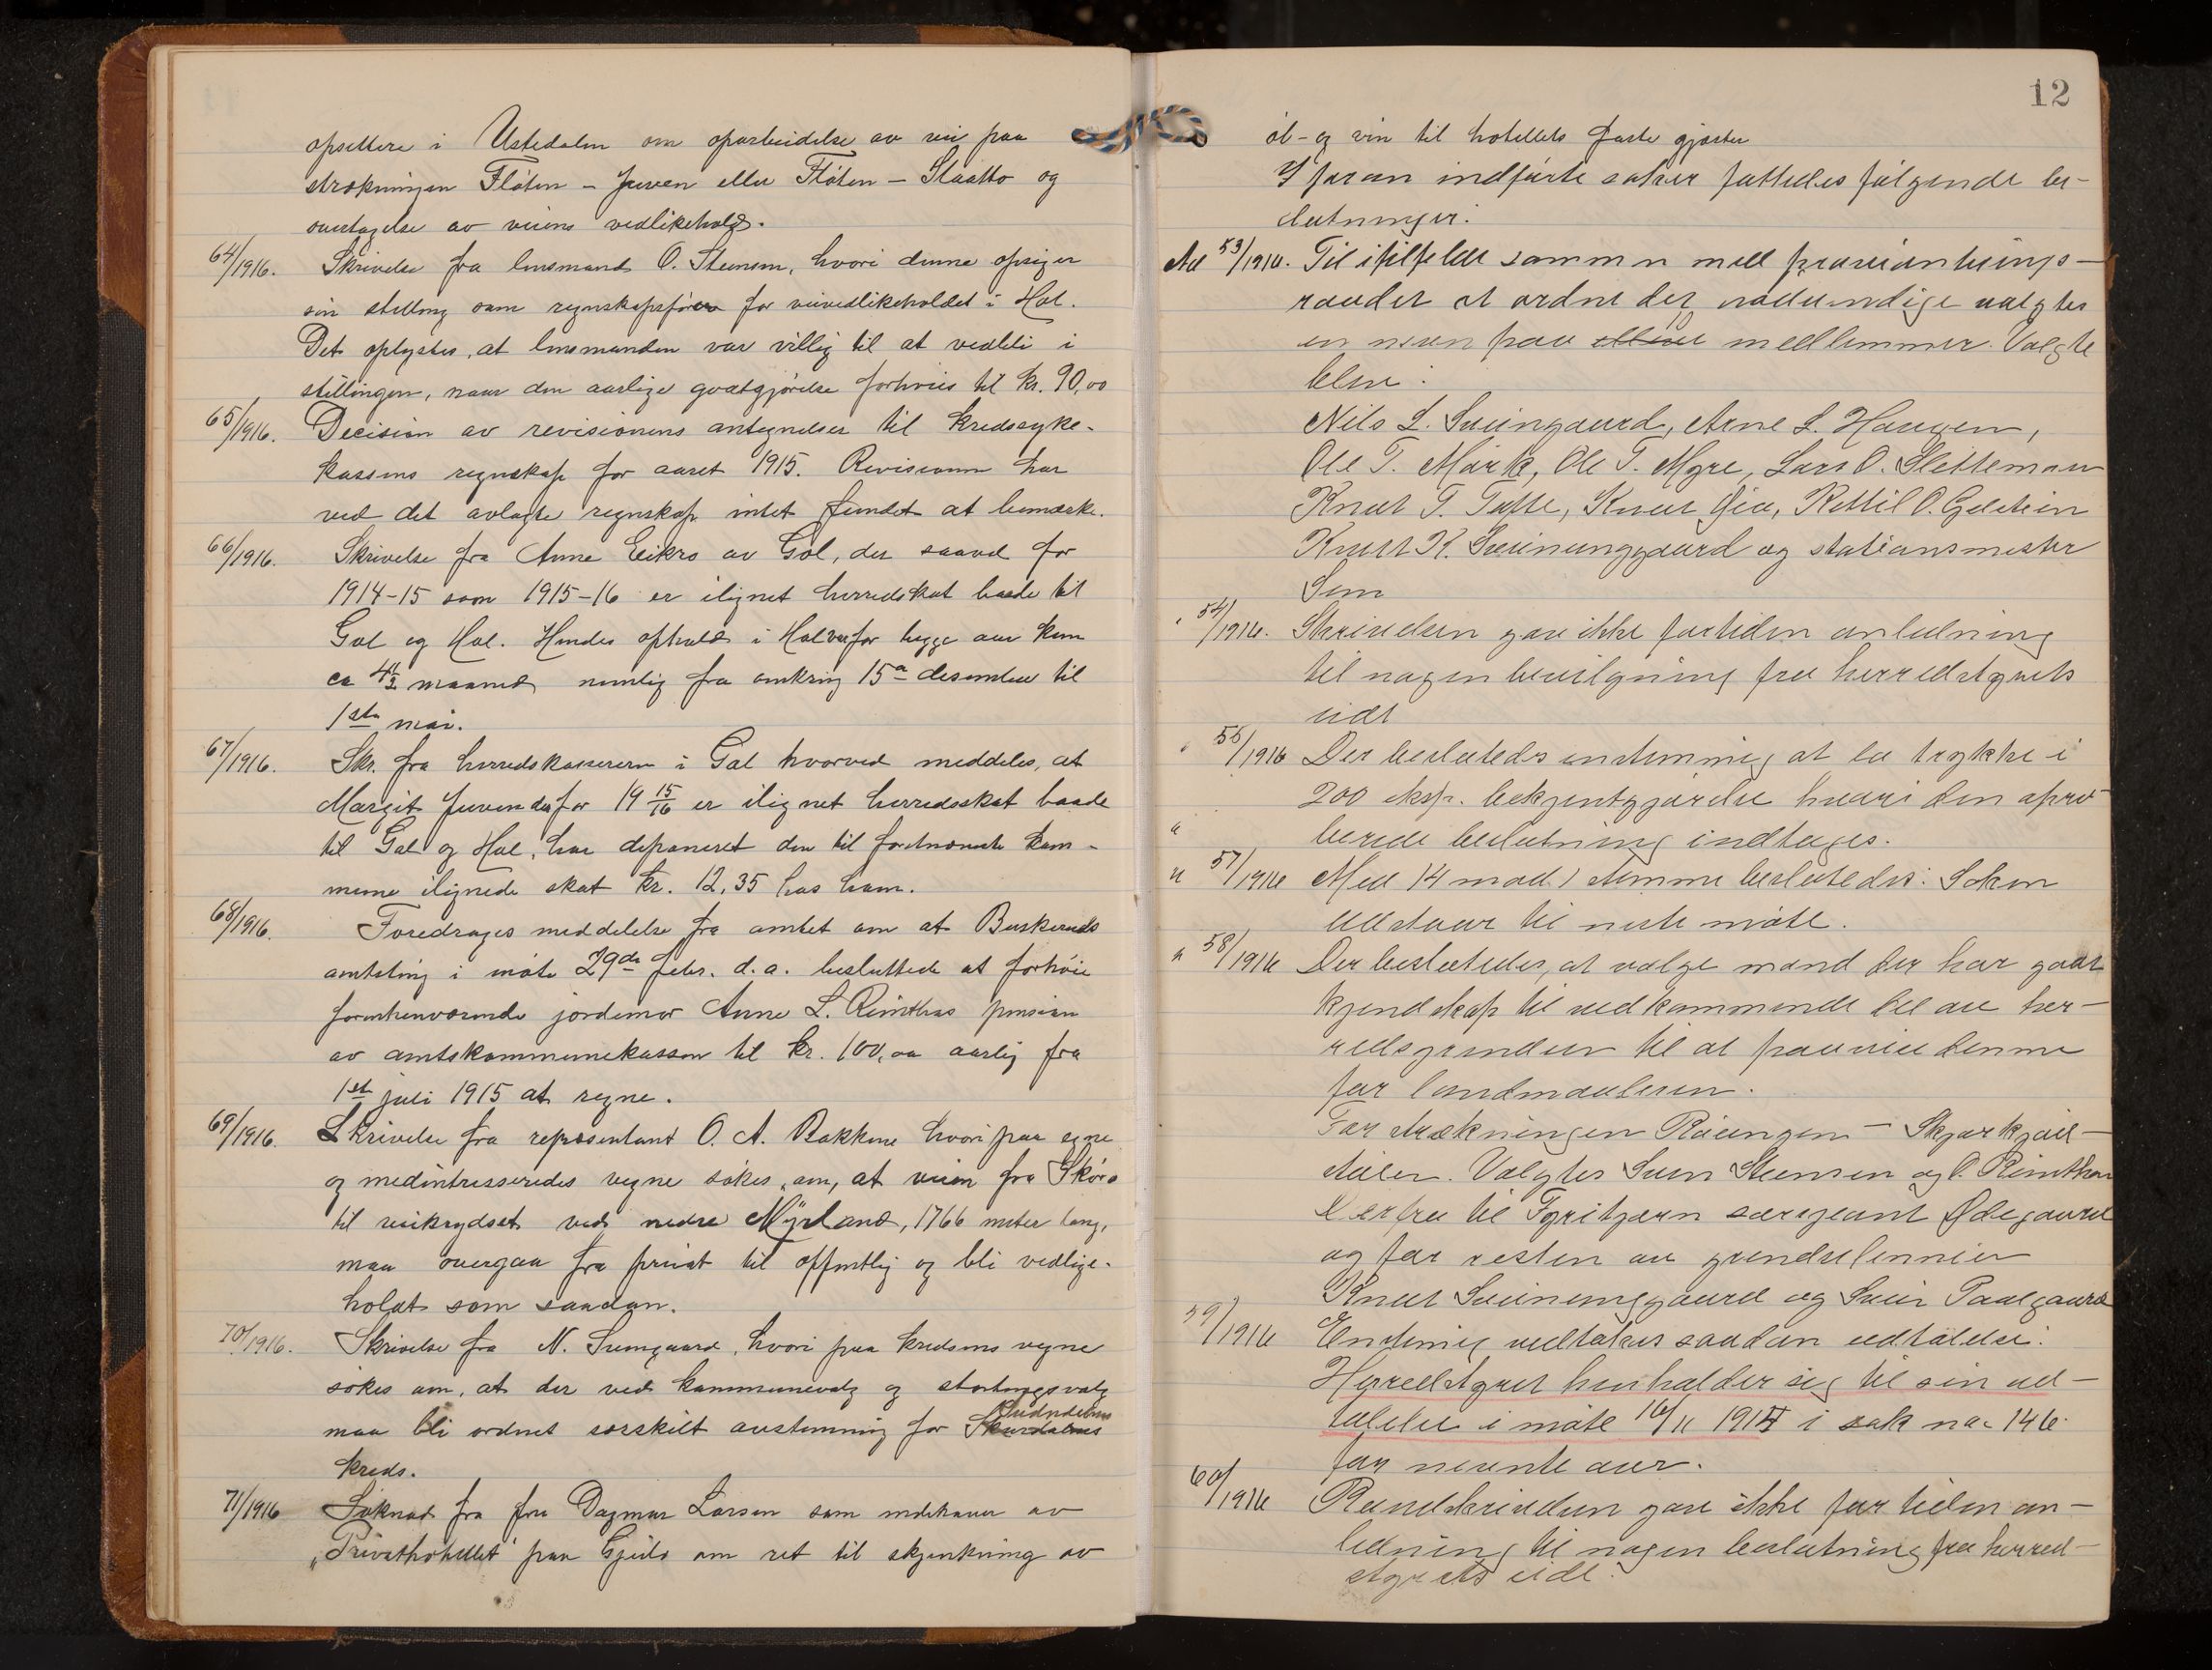 opsittere i Ustedalen om oparbeidelse av vei paa
strækningen Fløten - Juven eller Fløten - Slaatto og
overtagelse av veiens vedlikehold.
64/1916. Skrivelse fra lensmand O. Steensen, hvori denne opsiger
sin stilling som regnskapsfører for veivedlikeholdet i Hol.
Det oplystes, at lensmanden var villig til at vedbli i
stillingen, naar den aarlige godtgjørelse forhøies til kr. 90,00
65/1916. Decision av revisionens antegnelser til kredssyke-
kassens regnskap for aaret 1915. Revisionen har
ved det avlagte regnskap intet fundet at bemærke.
66/1916. Skrivelse fra Anne Eikro av Gol, der saavel for
1914-15 som 1915-16 er ilignet herredskat baade til
Gol og Hol. Hendes ophold i Hol var for begge aar kun
ca 4½ maaned nemlig fra omkring 15de desember til
1ste mai.
67/1916. Skr. fra herredskassereren i Gol hvorved meddeles, at
Margit Juven der for 19 15/16 er ilignet herredsskat baade
til Gol og Hol, har deponeret den til førstnævnte kom-
mune ilignede skat kr. 12,35 hos ham.
68/1916. Foredrages meddelelse fra amtet om at Buskeruds
amtsting i møte 29de febr. d.a. besluttede at forhøie
forhenværende jordemor Anne L. Reinthns pension
av amtskommunekassen til kr. 100,00 aarlig fra
1ste juli 1915 at regne.
69/1916. Skrivelse fra repræsentant O. A. Bakkene hvori paa egne
og medintresseredes vegne søkes om, at veien fra Skøro
til veikrydset ved nedre Myrland, 1766 meter lang,
maa overgaa fra privat til offentlig og bli vedlige-
holdt som saadan.
70/1916. Skrivelse fra N. Sveingaard, hvori paa kredsens vegne
søkes om, at der ved kommunevalg og stortingsvalg
maa bli ordnet særskilt avstemning for Skurdalens
kreds.
71/1916 Søknad fra fru Dagmar Larsen som indehaver av
„Privathotellet" paa Gjeilo om ret til skjenkning av
12
øl- og vin til hotellets faste gjæster
I foran indførte saker fattedes følgende be-
slutninger:
Ad 53/1916. Til i tilfelde sammen med provianterings-
raadet at ordne det nødvendige valgtes
en nevn paa medlemmer. Valgte
blev:
Nils L. Sveingaard, Arne L. Haugen,
Ole T. Mørk, Ole T. Myre, Lars O. Sletteman
Knut T. Tufte, Knut Gia, Kittil O. Geilstein
Knut K. Sveinunggaard og stationsmester
Sem
" 54/1916. Skrivelsen gav ikke fortiden anledning
til nogen bevilgning fra herredstyrets
side
" 56/1916 Der besluttedes enstemmig at la trykke i
200 eksp. bekjentgjørelse hvori den apro-
" berede beslutning indtages.
" 57/1916 Med 14 mod 1 stemme besluttedes: Saken
utstaar til neste møte.
" 58/1916 Der besluttedes, at vælge mænd der har godt
kjendskap til vedkommende del av her-
redsgrændsen til at paavise denne
for landmaaleren.
For strækningen Raungen - Skjerkjøl-
støler. Valgtes Sven Steensen og O. Reinthon
Derfra til Tyritjern sersjeant Ødegaard
og for resten av grendselinnien
Knut Sveinunggaard og Svein Paalgaard
59/1916 Enstemig vedtokes saadan udtalelse:
Herredstyret henholder sig til sin ud-
talelse i møte 16/11 1915 i sak no. 146
for nevnte aar.
60/1916 Rundskrivelsen gav ikke for tiden an-
ledning til nogen beslutning fra herred-
styrets side.